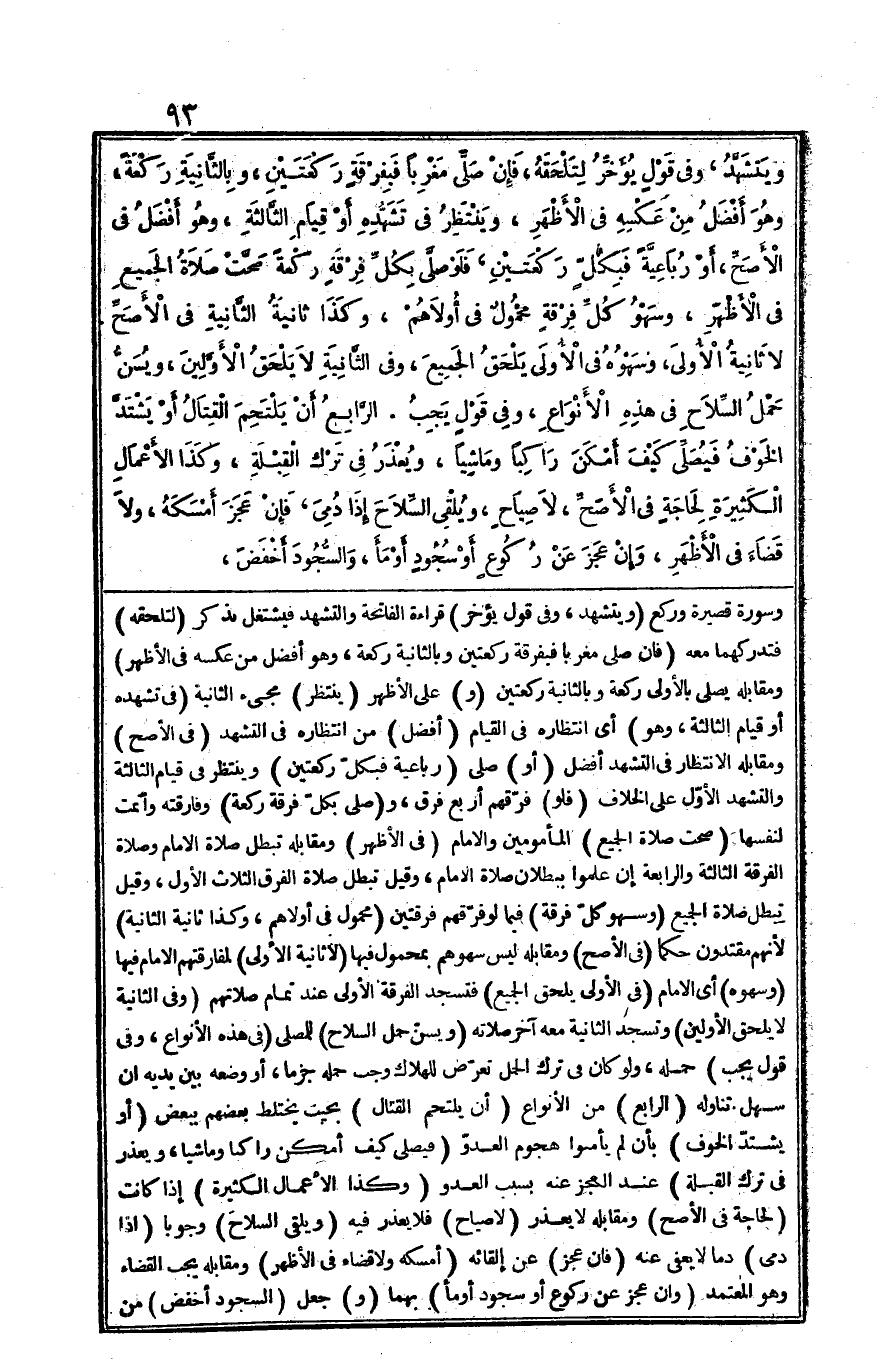 ٩٣
وَيَتَشَهَّدُ، وفى قَوْلٍ يُؤَخِّرُ لِتَلْحَقَهُ، فَإِنْ صَلَّى مَغْرِباً فَبِفِرْقَةٍ رَكْعَتَيْنِ، وبِالثَّانِيَةِ رَكْعَةً،
وهُوَ أَفْضَلُ مِنْ عَكْسِهِ فى الْأَظْهَرِ، ويَنْتَظِرُ فى تَشَهُّدِهِ أَوْ قِيَامِ الثَّالِثَةِ، وهُو أَفْضَلُ فى
الْأَصَحِّ، أَوْ رُبَاعِيَّةً فَبِكُلٍّ رَكْعَتَيْنِ، فَلَوْ صَلَّى بِكُلِّ فِرْقَةٍ رَكْعَةً صَحَّتْ صَلَاةُ الجَمِيعِ
فى الْأَظْهَرِ، وسَهْوُ كُلِّ فِرْقَةٍ مَحْمُولٌ فى أُولَاهُمْ، وكَذَا ثانِيَةُ الثَّانِيَةِ فى الْأَصَحِّ
لا ثَانِيَةُ الْأُولَى، وسَهْوُهُ فى الْأُولَى يَلْحَقُ الجَمِيعَ، وفى الثَّانِيَةِ لَا يَلْحَقُ الْأَوَّلِينَ، ويُسَنُّ
حَمْلُ السِّلَاحِ فى هذِهِ الْأَنْوَاعِ، وفى قَوْلٍ يَجِبُ. الرَّابِعُ أَنْ يَلْتَحِمَ الْقِتَالُ أَوْ يَشْتَدَّ
الخَوْفُ فَيُصَلِّى كَيْفَ أَمْكَنَ رَاكِباً ومَاشِياً، ويُعْذَرُ فى تَرْكِ الْقِبْلَةِ، وكَذَا الأَعْمَالِ
الْكَثِيرَةِ لِحَاجَةٍ فى الْأَصَحِّ، لاَ صِيَاحٍ، ويُلْقِى السِّلَاحَ إِذَا دُمِىَ، فَإِنْ عَجَزَ أَمْسَكَهُ، ولاَ
قَضَاءَ فى الْأَظْهَرِ، وَإِنْ عَجَزَ عَنْ رُكُوعٍ أَوْ سُجُودٍ أَوْمَأَ، وَالسُّجُودَ أَخْفَضَ،
وسورة قصيرة وركع (ويتشهد، وفى قول يؤخر) قراءة الفاتحة والتشهد فيشتغل بذكر (لتلحقه)
فتدركهما معه (فان صلى مغربا فبفرقة ركعتين وبالثانية ركعة، وهو أفضل من عكسه فى الأظهر)
ومقابله يصلى بالأولى ركعة وبالثانية ركعتين (و) على الأظهر (ينتظر) مجىء الثانية (فى تشهده
أو قيام الثالثة، وهو) أى انتظاره فى القيام (أفضل) من انتظاره فى التشهد (فى الأصح)
ومقابله الانتظار فى التشهد أفضل (أو) صلى (رباعية فبكلّ ركعتين) وينتظر فى قيام الثالثة
والتشهد الأوّل على الخلاف (فلو) فرّقهم أربع فرق، و(صلى بكلّ فرقة ركعة) وفارقته وأتمت
لنفسها (صحت صلاة الجميع) المأمومين والامام (فى الأظهر) ومقابله تبطل صلاة الامام وصلاة
الفرقة الثالثة والرابعة إن علموا ببطلان صلاة الامام، وقيل تبطل صلاة الفرق الثلاث الأول، وقيل
تبطل صلاة الجميع (وسهو كلّ فرقة) فيما لو فرّقهم فرقتين (محمول فى أولاهم، وكذا ثانية الثانية)
لأنهم مقتدون حكما (فى الأصح) ومقابله ليس سهوهم بمحمول فيها (لا ثانية الأولى) لمفارقتهم الامام فيها
(وسهوه) أى الامام (فى الأولى يلحق الجميع) فتسجد الفرقة الأولى عند تمام صلاتهم (وفى الثانية
لا يلحق الأولين) وتسجد الثانية معه آخر صلاته (ويسنّ حمل السلاح) للمصلى (فى هذه الأنواع، وفى
قول يجب) حمله، ولو كان فى ترك الحمل تعرّض للهلاك وجب حمله جزما، أو وضعه بين يديه ان
سهل تناوله (الرابع) من الأنواع (أن يلتحم القتال) بحيث يختلط بعضهم ببعض (أو
يشتدّ الخوف) بأن لم يأمنوا هجوم العدوّ (فيصلى كيف أمكن راكبا وماشيا، ويعذر
فى ترك القبلة) عند العجز عنه بسبب العدو (وكذا الأعمال الكثيرة) إذا كانت
(لحاجة فى الأصح) ومقابله لا يعذر (لا صياح) فلا يعذر فيه (ويلقى السلاح) وجوبا (اذا
دمى) دما لا يعفى عنه (فان عجز) عن إلقائه (أمسكه ولا قضاء فى الأظهر) ومقابله يجب القضاء
وهو المعتمد (وان عجز عن ركوع أو سجود أومأ) بهما (و) جعل (السجود أخفض) من